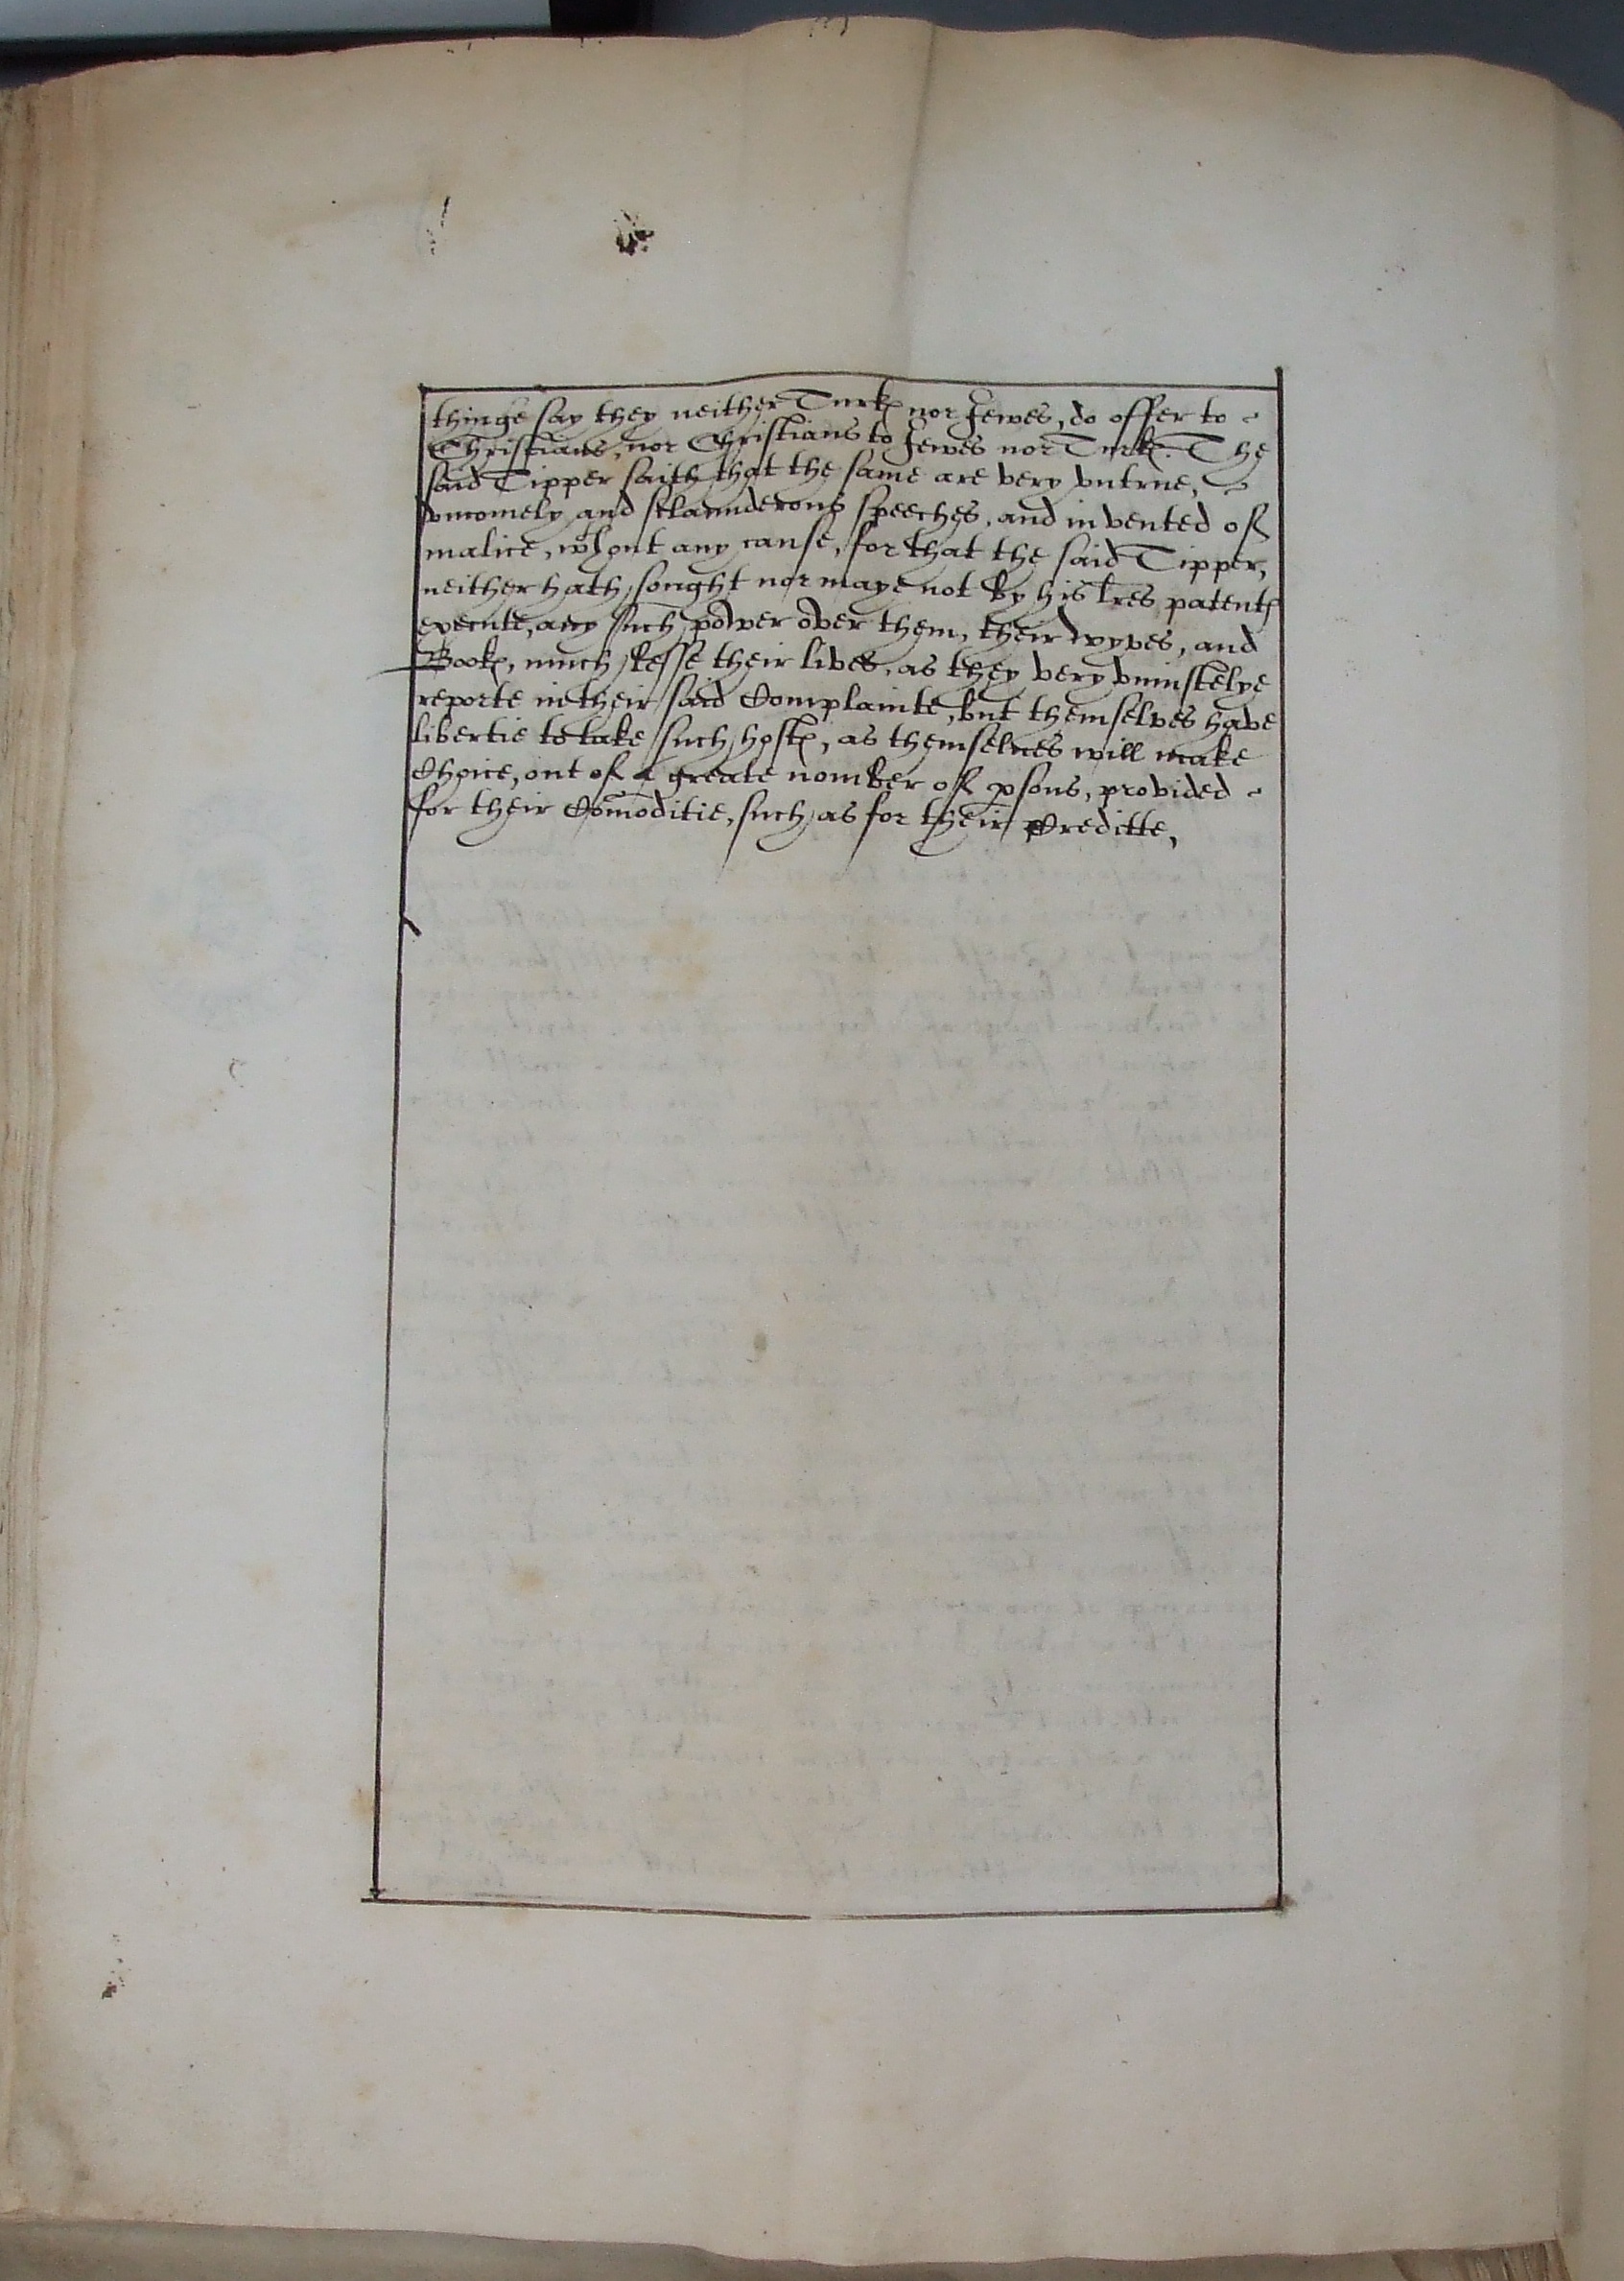 thinge say they neither Turkꝭ nor Jewes, do offer to
Christians, nor Christians to Jewes nor Turkꝭ. The
said Tipper saith that the same are very vntrue,
vncomely and sclaunderous speeches, and invented of
malice, wthout any cause, for that the said Tipper,
neither hath sought nor maye not by his lres patentꝭ
execute, any such power over them, their wyves, and
Bookꝭ, much lesse their lives, as they very vniustelye
reporte in their said Complainte, but themselves have
libertie to take such hostꝭ, as themselves will make
Choice, out of a greate nomber of psons, provided
for their Comoditie, such as for their Creditte,